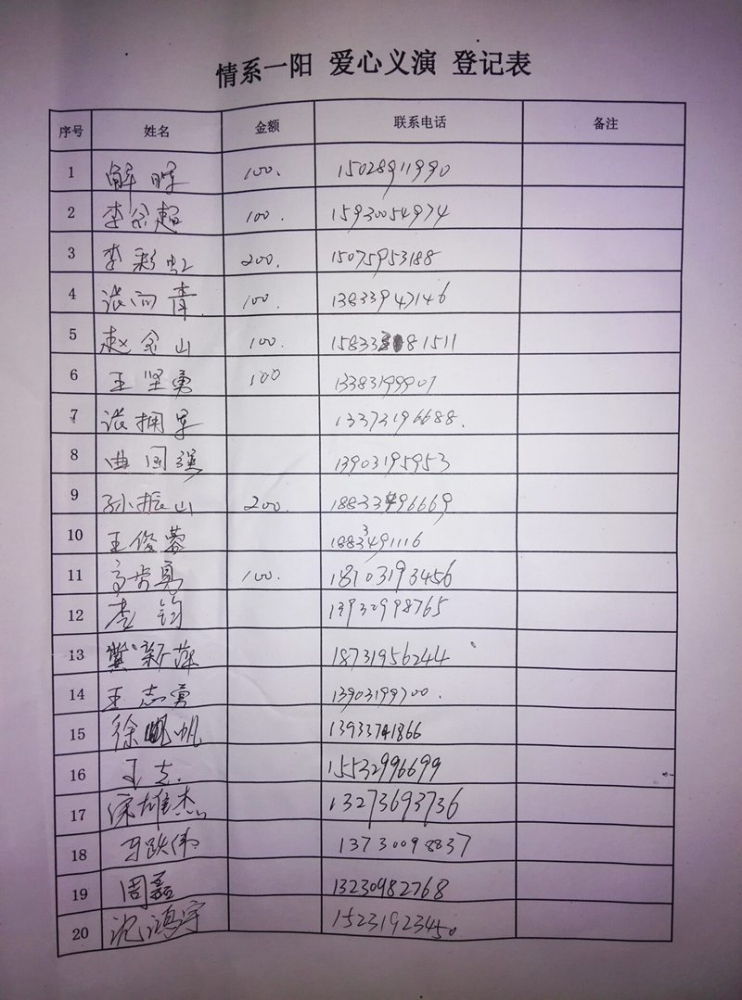 情系一阳 爱心义演 登记表
序号 姓名 金额 联系电话 备注
1 解晖 100. 15028911990
2 李宗超 100. 15930054974
3 李彩虹 200. 15075953188
4 张向青 100. 13833947146
5 赵金山 100. 1583381511
6 王坚勇 100 13383199907
7 张拥军 13373196688.
8 曲国强 13903195953
9 孙振山 200. 18833496669
10 王俊蓉 18833491116
11 100. 18103193456
12 李钧 13930998765
13 冀新萍 18731956244
14 王志勇 13903199700.
15 徐帆 13933741866
16 王志. 15532996699
17 徐雄杰 13273693736
18 马跃伟 13730098837
19 周磊 13230982768
20 沈鸿宇 15231923450